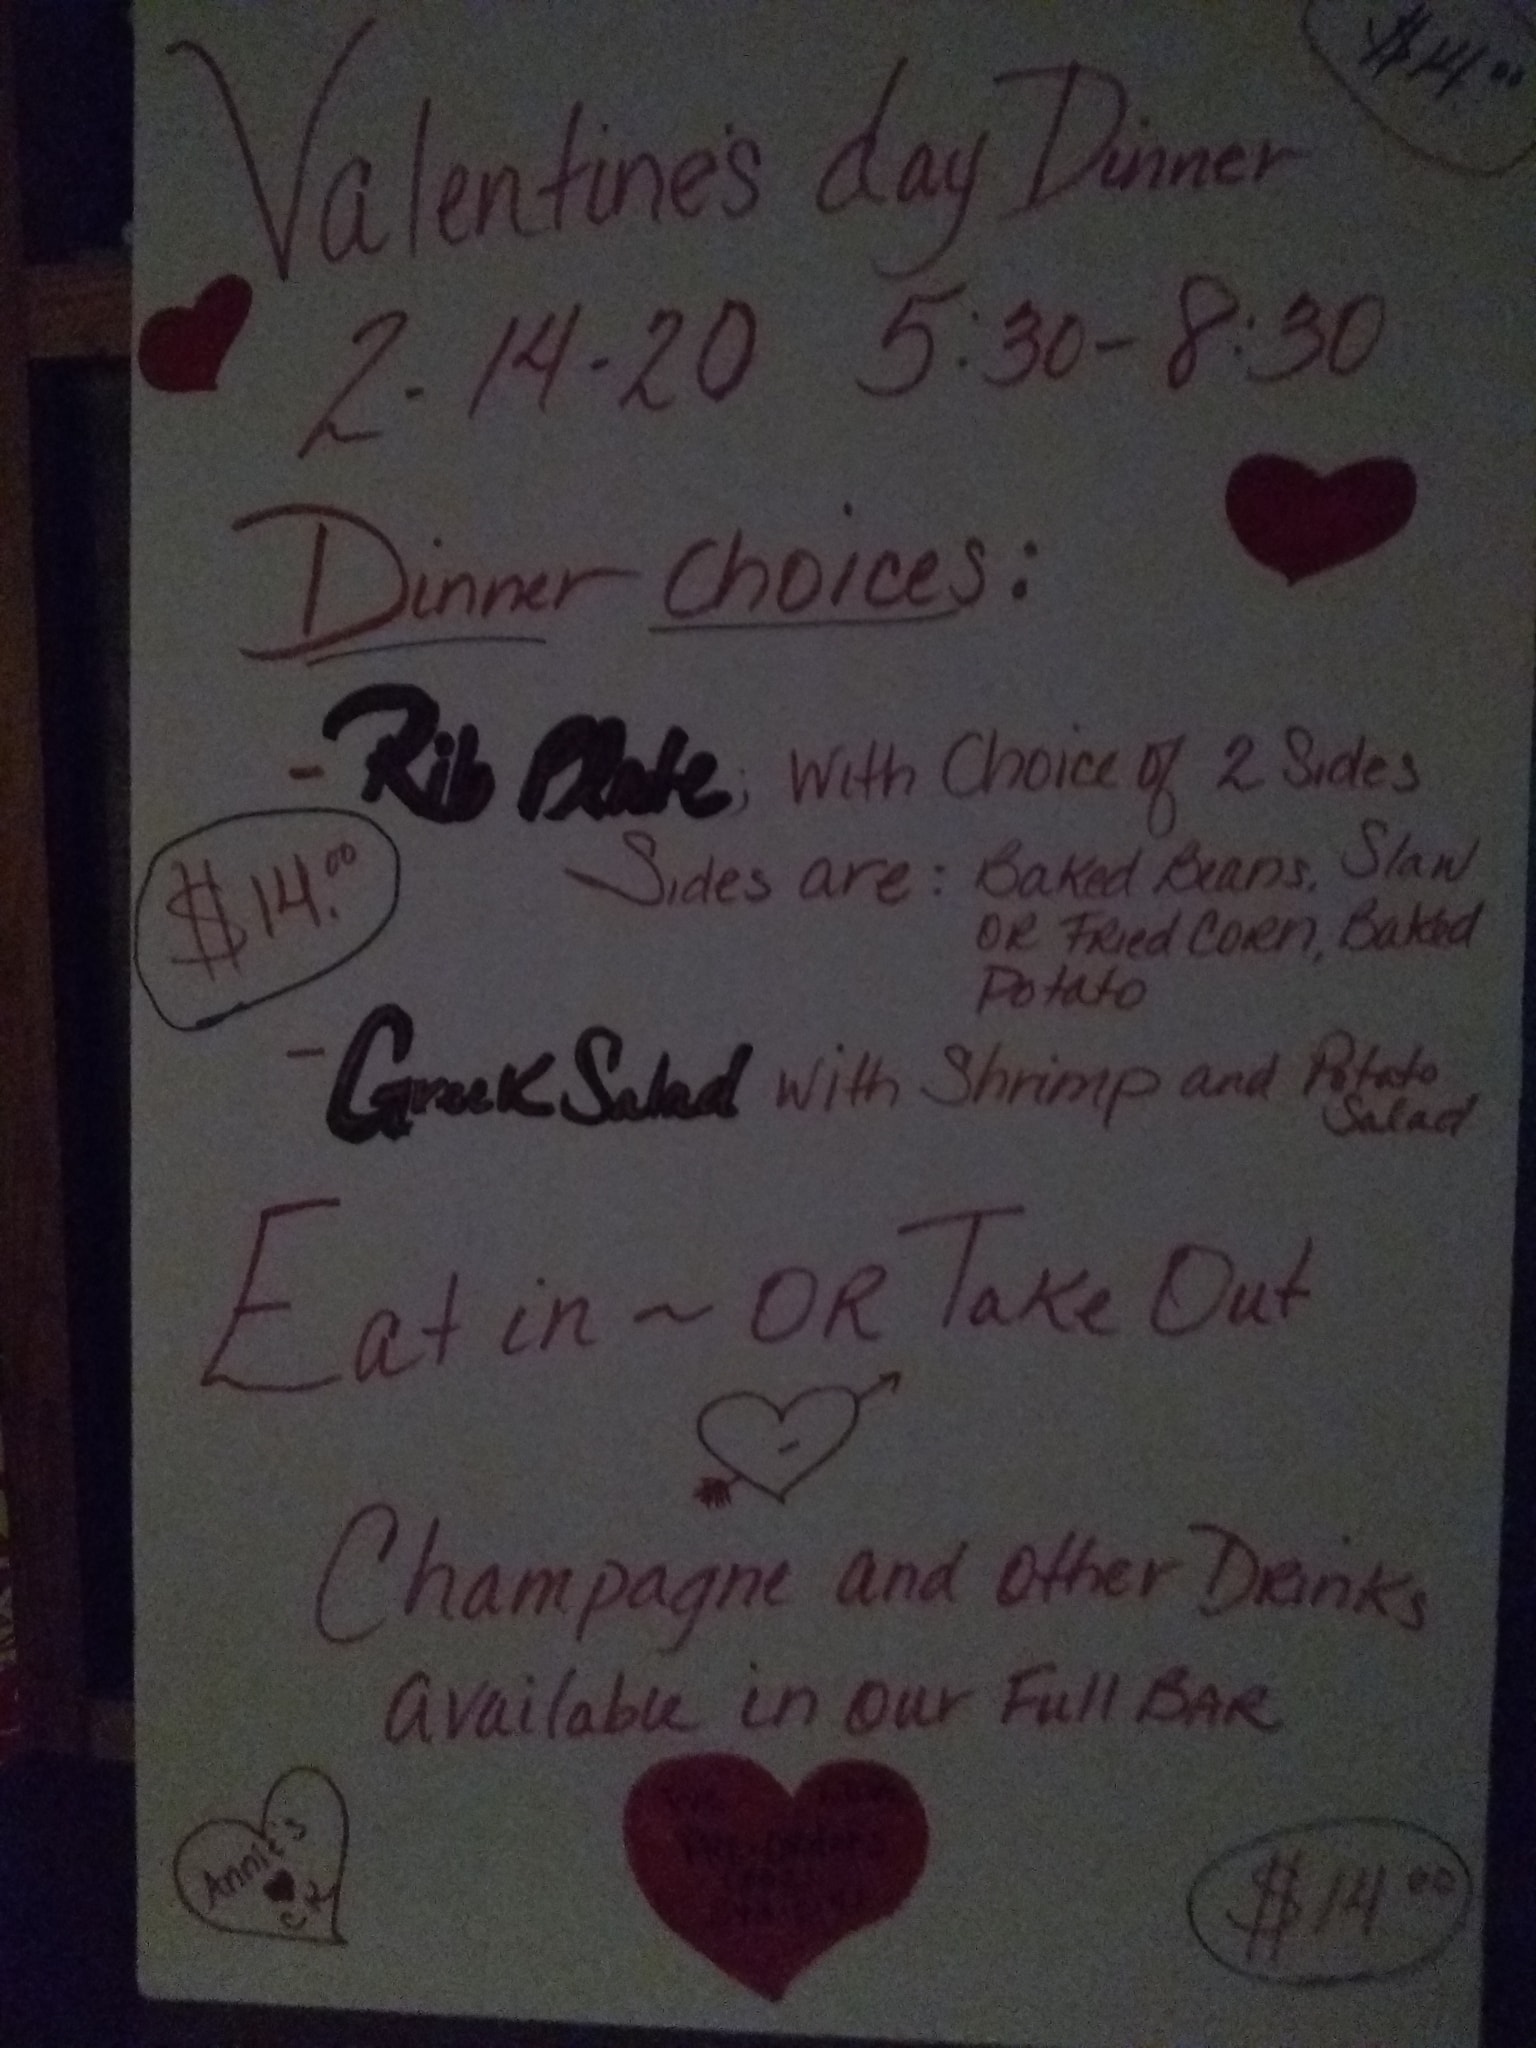 $14.00
Valentine's day Dinner
2-14-20 5:30-8:30
Dinner Choices:
- Rib Plate; with Choice of 2 Sides
Sides are: Baked Beans, Slaw
$14.00
OR Fried Corn, Baked
Potato
- Greek Salad with Shrimp and Potato
Salad
Eat in ~ OR Take Out
Champagne and other Drinks
available in our Full BAR
Annie's
$14.00